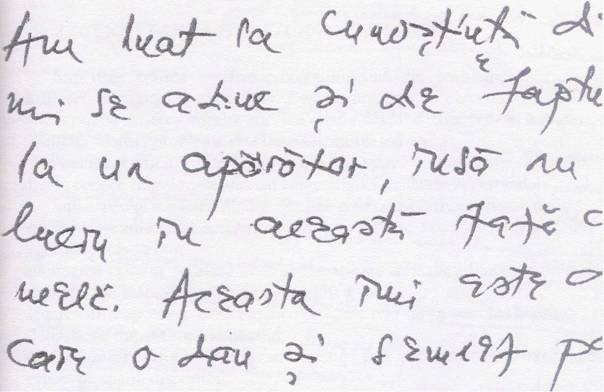 Am luat la cunoștință d
mi se aduc și de fapte
la un apărător, însă nu
lucru în această fază a
mele. Aceasta îmi este
care o dau și semnez p